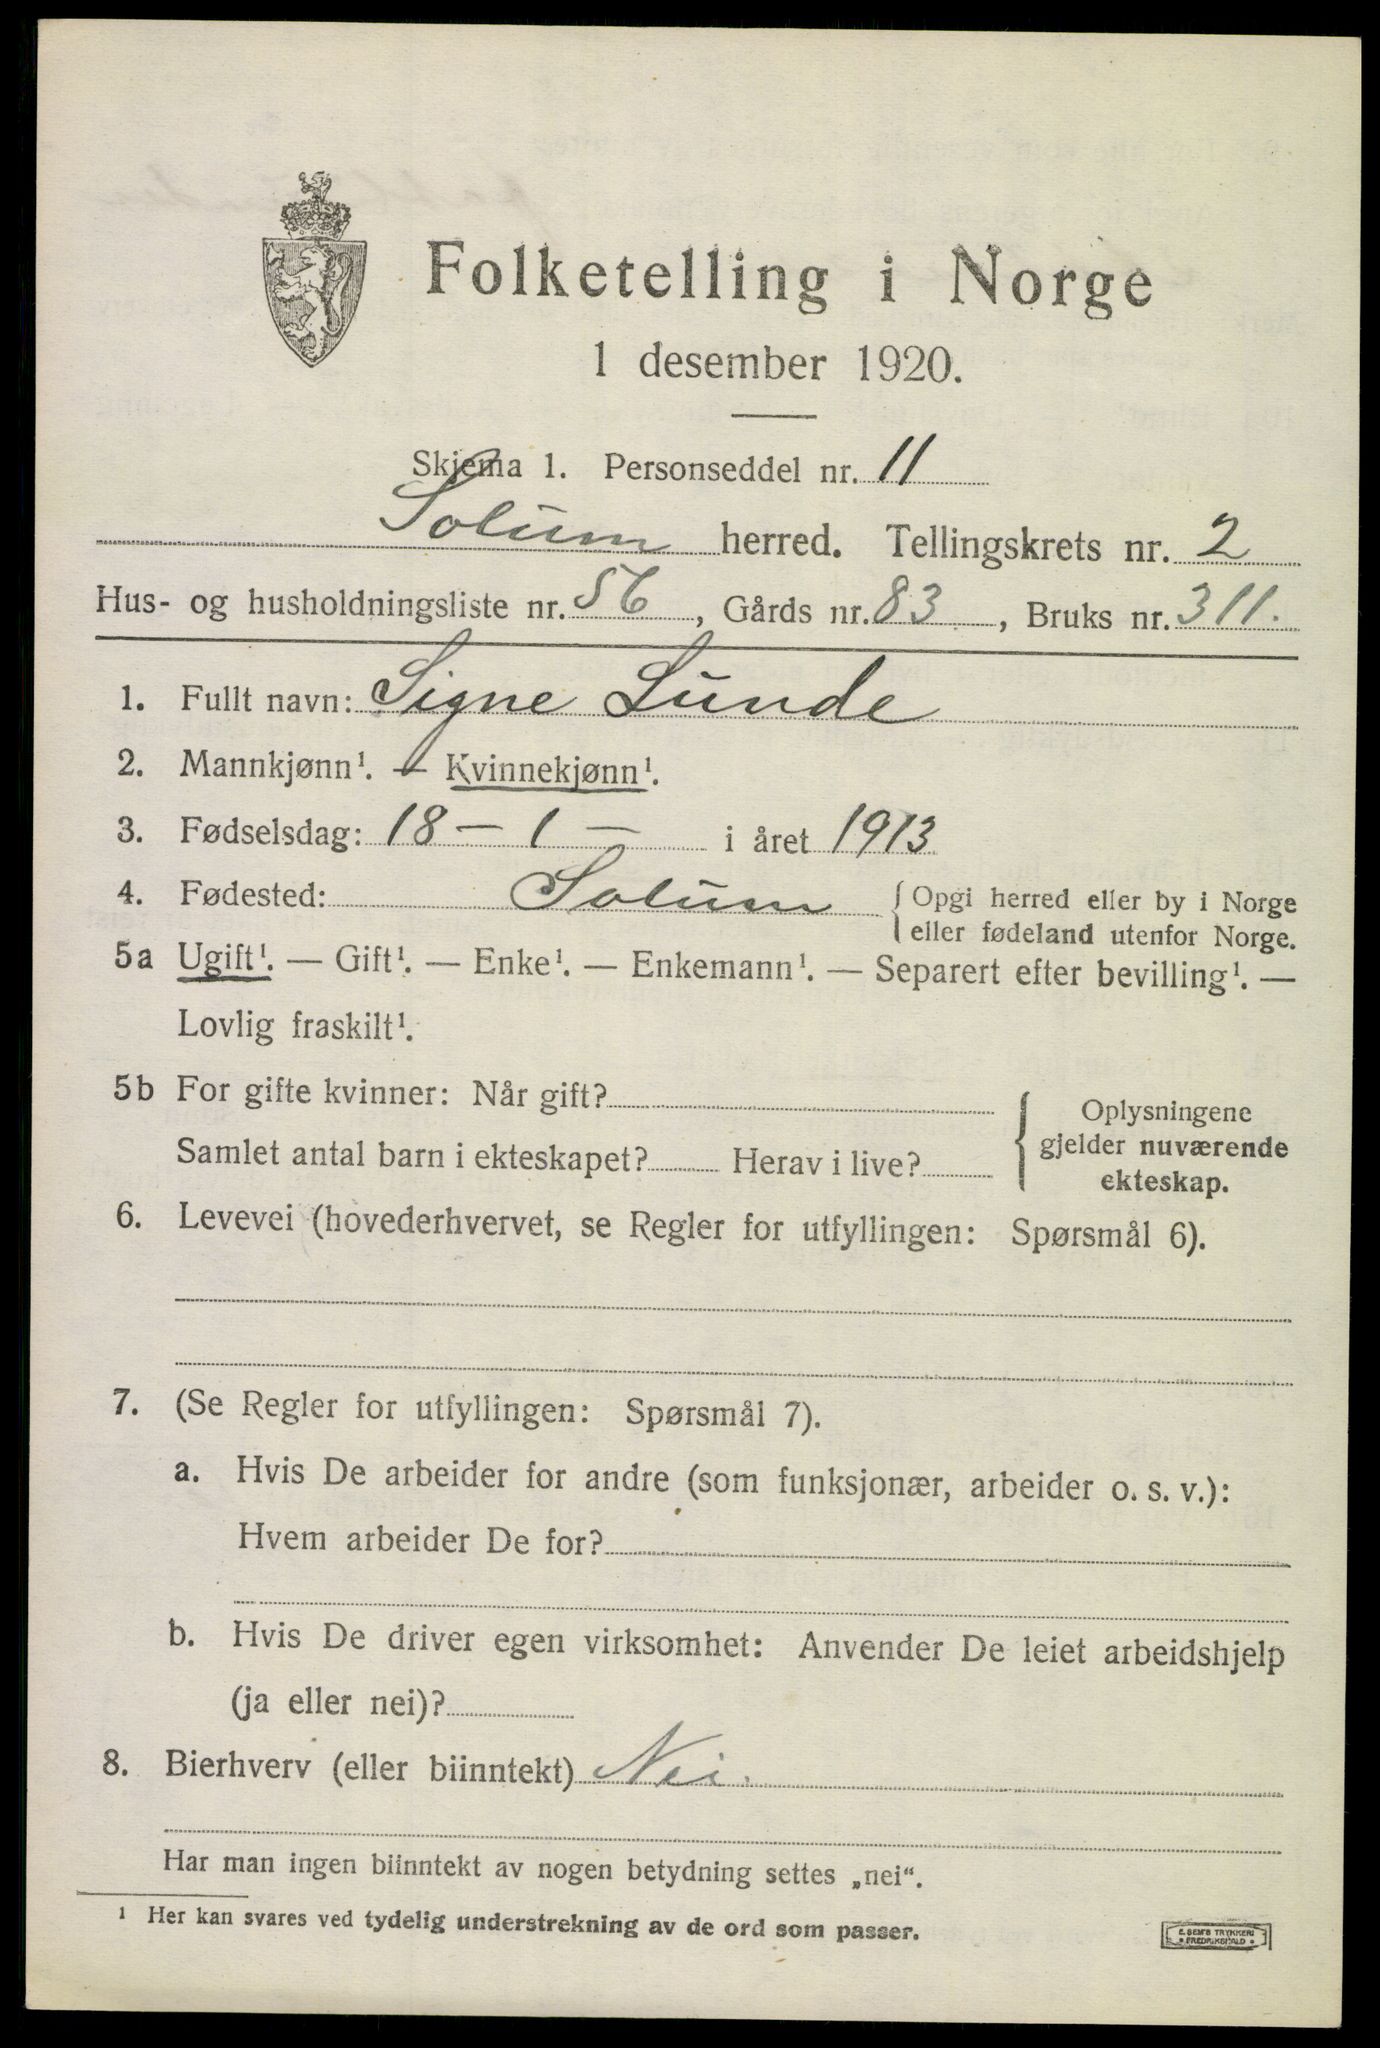 Folketelling i Norge
1 desember 1920.
Skjema 1. Personseddel nr. 11
Solum herred. Tellingskrets nr. 2
Hus- og husholdningsliste nr. 56, Gårds nr. 83, Bruks nr. 311.
1. Fullt navn: Signe Lunde
2. Mannkjønn¹. — Kvinnekjønn¹.
3. Fødselsdag: 18 – 1 – i året 1913
4. Fødested: Solum { Opgi herred eller by i Norge
eller fødeland utenfor Norge.
5a Ugift¹. — Gift¹. — Enke¹. — Enkemann¹. — Separert efter bevilling¹. —
Lovlig fraskilt¹.
5b For gifte kvinner: Når gift?
Samlet antal barn i ekteskapet? Herav i live?
Oplysningene
gjelder nuværende
ekteskap.
6. Levevei (hovederhvervet, se Regler for utfyllingen: Spørsmål 6).
7. (Se Regler for utfyllingen: Spørsmål 7).
a. Hvis De arbeider for andre (som funksjonær, arbeider o. s. v.):
Hvem arbeider De for?
b. Hvis De driver egen virksomhet: Anvender De leiet arbeidshjelp
(ja eller nei)?
8. Bierhverv (eller biinntekt) Nei.
Har man ingen biinntekt av nogen betydning settes „nei“.
¹ Her kan svares ved tydelig understrekning av de ord som passer.
E. SEM'S TRYKKERI
FREDRIKSHALD